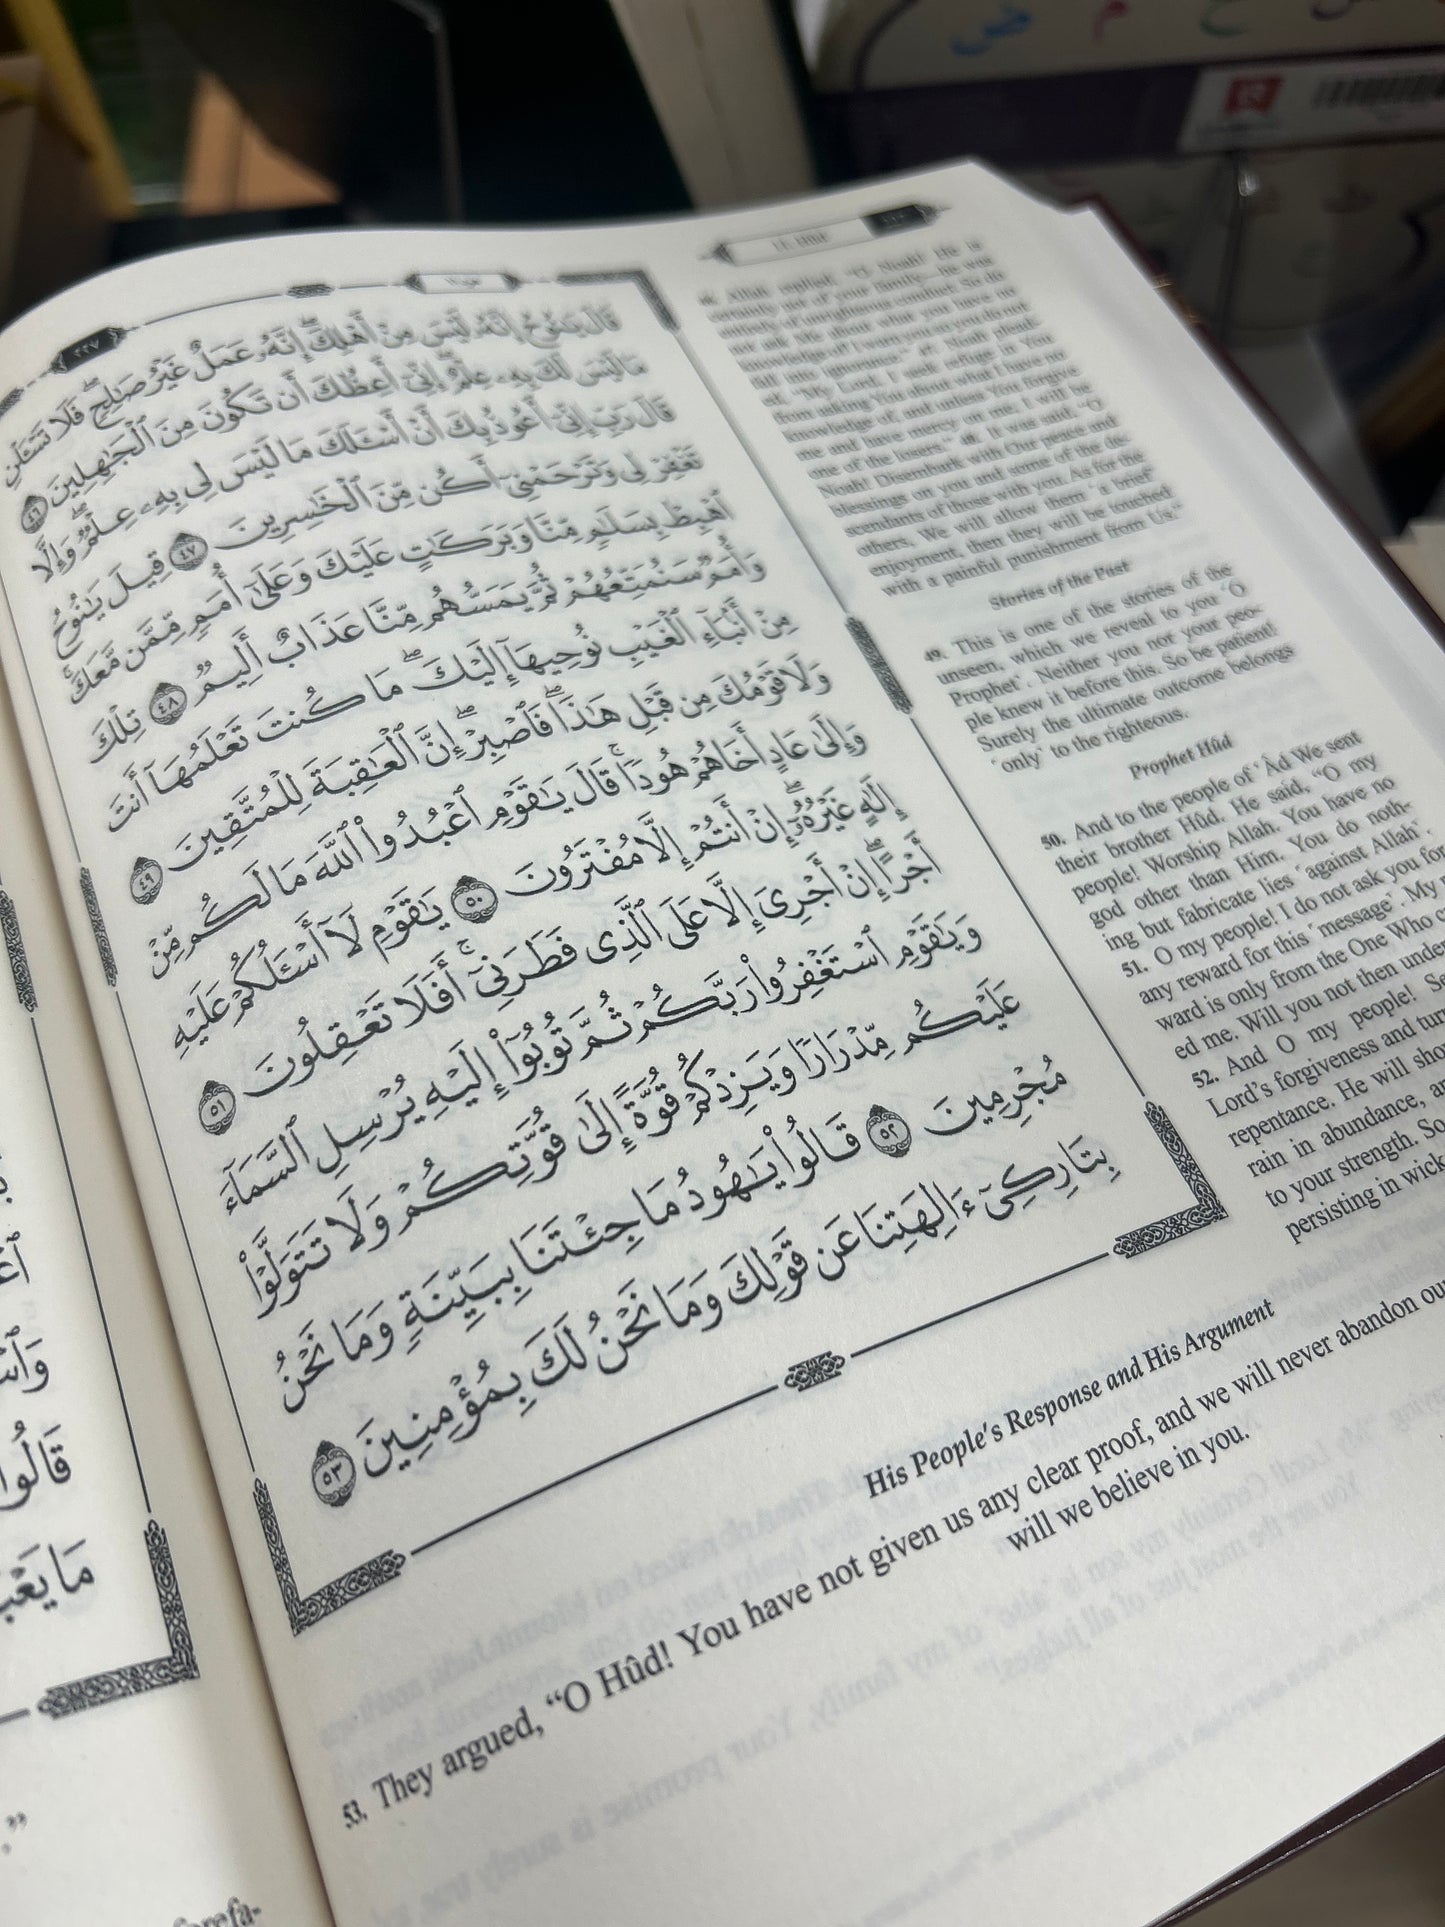 ٢٢٧
قَالَ يَـٰنُوحُ إِنَّهُۥ لَيْسَ مِنْ أَهْلِكَ ۖ إِنَّهُۥ عَمَلٌ غَيْرُ صَـٰلِحٍ ۖ فَلَا تَسْـَٔلْنِ
مَا لَيْسَ لَكَ بِهِۦ عِلْمٌ ۖ إِنِّىٓ أَعِظُكَ أَن تَكُونَ مِنَ ٱلْجَـٰهِلِينَ ٤٦
قَالَ رَبِّ إِنِّىٓ أَعُوذُ بِكَ أَنْ أَسْـَٔلَكَ مَا لَيْسَ لِى بِهِۦ عِلْمٌ ۖ وَإِلَّا
تَغْفِرْ لِى وَتَرْحَمْنِىٓ أَكُن مِّنَ ٱلْخَـٰسِرِينَ ٤٧ قِيلَ يَـٰنُوحُ
ٱهْبِطْ بِسَلَـٰمٍ مِّنَّا وَبَرَكَـٰتٍ عَلَيْكَ وَعَلَىٰٓ أُمَمٍ مِّمَّن مَّعَكَ ۚ
وَأُمَمٌ سَنُمَتِّعُهُمْ ثُمَّ يَمَسُّهُم مِّنَّا عَذَابٌ أَلِيمٌ ٤٨ تِلْكَ
مِنْ أَنۢبَآءِ ٱلْغَيْبِ نُوحِيهَآ إِلَيْكَ ۖ مَا كُنتَ تَعْلَمُهَآ أَنتَ
وَلَا قَوْمُكَ مِن قَبْلِ هَـٰذَا ۖ فَٱصْبِرْ ۖ إِنَّ ٱلْعَـٰقِبَةَ لِلْمُتَّقِينَ ٤٩
وَإِلَىٰ عَادٍ أَخَاهُمْ هُودًا ۚ قَالَ يَـٰقَوْمِ ٱعْبُدُوا۟ ٱللَّهَ مَا لَكُم مِّنْ
إِلَـٰهٍ غَيْرُهُۥٓ ۖ إِنْ أَنتُمْ إِلَّا مُفْتَرُونَ ٥٠ يَـٰقَوْمِ لَآ أَسْـَٔلُكُمْ عَلَيْهِ
أَجْرًا ۖ إِنْ أَجْرِىَ إِلَّا عَلَى ٱلَّذِى فَطَرَنِىٓ ۚ أَفَلَا تَعْقِلُونَ ٥١
وَيَـٰقَوْمِ ٱسْتَغْفِرُوا۟ رَبَّكُمْ ثُمَّ تُوبُوٓا۟ إِلَيْهِ يُرْسِلِ ٱلسَّمَآءَ
عَلَيْكُم مِّدْرَارًا وَيَزِدْكُمْ قُوَّةً إِلَىٰ قُوَّتِكُمْ وَلَا تَتَوَلَّوْا۟
مُجْرِمِينَ ٥٢ قَالُوا۟ يَـٰهُودُ مَا جِئْتَنَا بِبَيِّنَةٍ وَمَا نَحْنُ
بِتَارِكِىٓ ءَالِهَتِنَا عَن قَوْلِكَ وَمَا نَحْنُ لَكَ بِمُؤْمِنِينَ ٥٣
46. Allah replied, “O Noah! He is
certainly not of your family—he was
entirely of unrighteous conduct. So do
not ask Me about what you have no
knowledge of! I warn you so you do not
fall into ignorance.” 47. Noah plead-
ed, “My Lord, I seek refuge in You
from asking You about what I have no
knowledge of, and unless You forgive
me and have mercy on me, I will be
one of the losers.” 48. It was said, “O
Noah! Disembark with Our peace and
blessings on you and some of the de-
scendants of those with you. As for the
others, We will allow them ˹a brief˺
enjoyment, then they will be touched
with a painful punishment from Us.”
Stories of the Past
49. This is one of the stories of the
unseen, which we reveal to you ˹O
Prophet˺. Neither you nor your peo-
ple knew it before this. So be patient!
Surely the ultimate outcome belongs
˹only˺ to the righteous.
Prophet Hûd
50. And to the people of ’Âd We sent
their brother Hûd. He said, “O my
people! Worship Allah. You have no
god other than Him. You do noth-
ing but fabricate lies ˹against Allah˺.
51. O my people! I do not ask you for
any reward for this ˹message˺. My
ward is only from the One Who
ed me. Will you not then
52. And O my people!
Lord’s forgiveness and
repentance. He will
rain in abundance,
to your strength. So
persisting in
His People’s Response and His Argument
53. They argued, “O Hûd! You have not given us any clear proof, and we will never abandon
will we believe in you.
قَالُوا
مَا